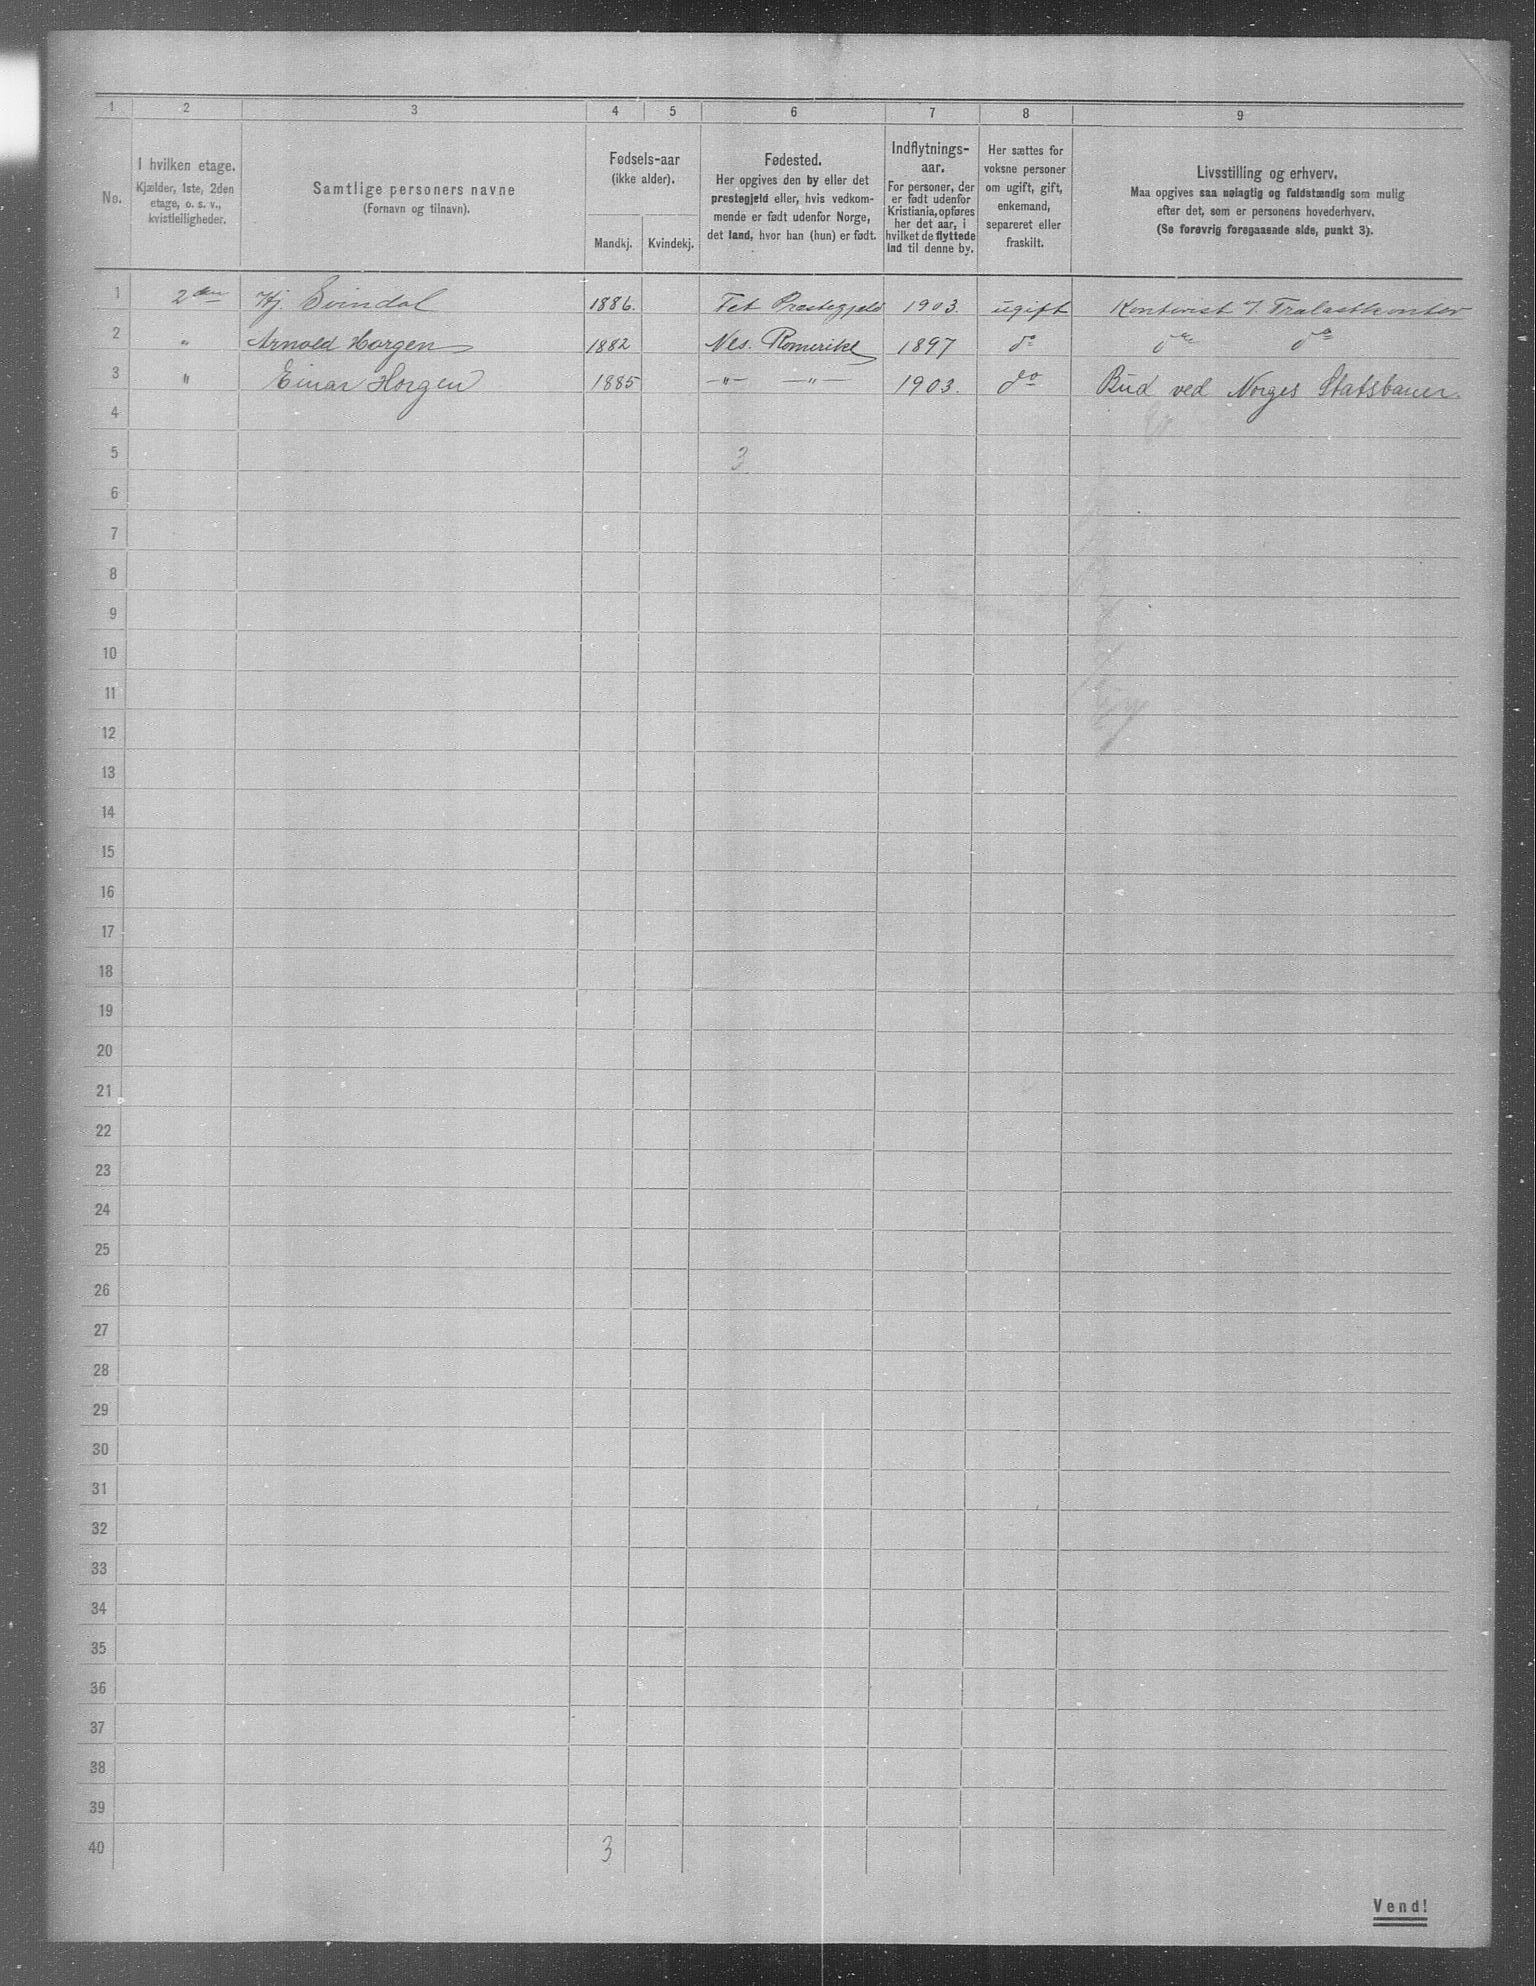 1 2 3 4 5 6 7 8 9
No.
I hvilken etage.
Kjælder, 1ste, 2den
etage, o. s. v.,
kvistleiligheder.
Samtlige personers navne
(Fornavn og tilnavn).
Fødsels-aar
(ikke alder).
Mandkj. Kvindekj.
Fødested.
Her opgives den by eller det
prestegjeld eller, hvis vedkom-
mende er født udenfor Norge,
det land, hvor han (hun) er født.
Indflytnings-
aar.
For personer, der
er født udenfor
Kristiania, opføres
her det aar, i
hvilket de flyttede
ind til denne by.
Her sættes for
voksne personer
om ugift, gift,
enkemand,
separeret eller
fraskilt.
Livsstilling og erhverv.
Maa opgives saa nøiagtig og fuldstændig som mulig
efter det, som er personens hovederhverv.
(Se forøvrig foregaaende side, punkt 3).
1 2den Hj. Svindal 1886. Fet Prestegjeld 1903. ugift Kontorist i Trælastkontor
2 " Arnold Horgen 1882 Nes. Romerike 1897 do do do
3 " Einar Horgen 1885 —"— —"— 1903. do Bud ved Norges Statsbaner.
4
5 3
6
7
8
9
10
11
12
13
14
15
16
17
18
19
20
21
22
23
24
25
26
27
28
29
30
31
32
33
34
35
36
37
38
39
40 3
Vend!